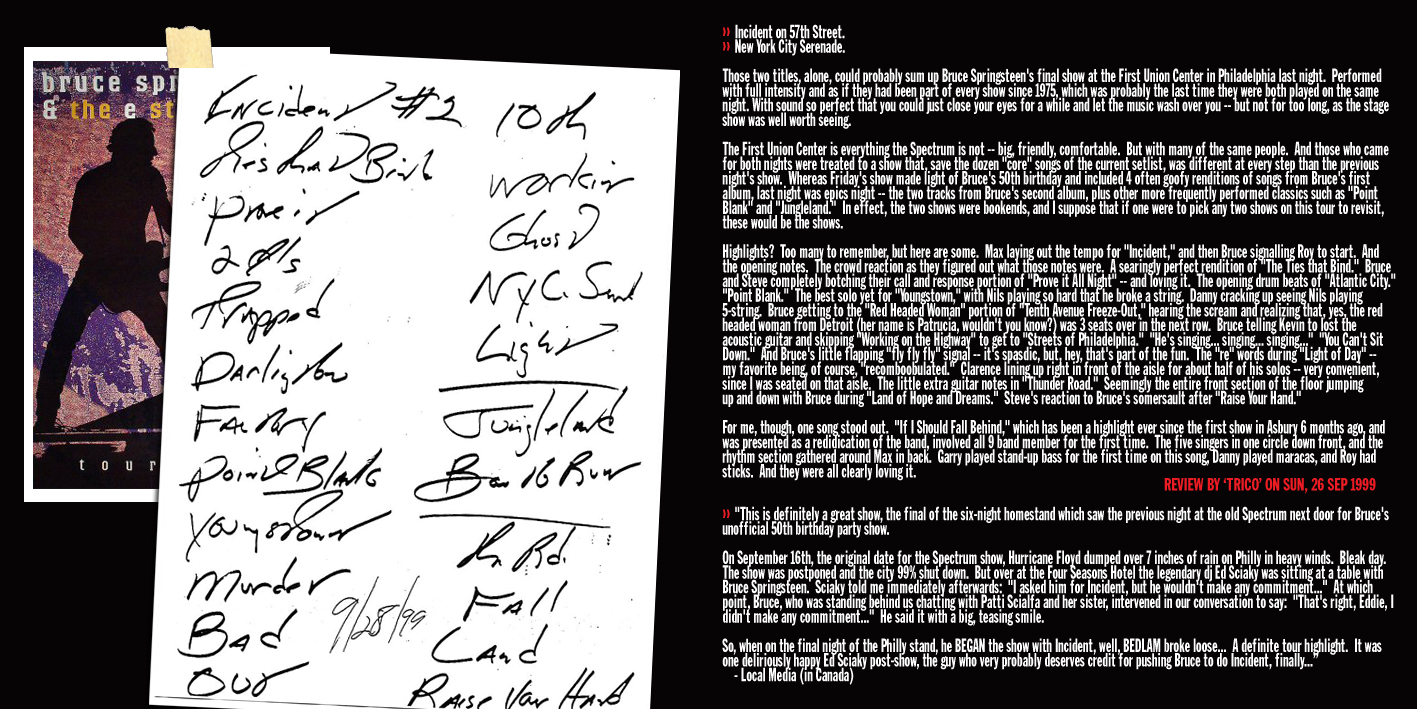 bruce spr
& the e st
tour
Incident #2
Ties that Bind
prove it
2 
Trapped
Darlington
Factory
point Blank
Youngstown
Murder
Bad
Out
9/28/99
10th
workin
Ghost
NYC. Send
Light
Jungleland
Born to Run
Th Rd.
Fall
Land
Raise Your Hand
» Incident on 57th Street.
» New York City Serenade.
Those two titles, alone, could probably sum up Bruce Springsteen's final show at the First Union Center in Philadelphia last night. Performed
with full intensity and as if they had been part of every show since 1975, which was probably the last time they were both played on the same
night. With sound so perfect that you could just close your eyes for a while and let the music wash over you -- but not for too long, as the stage
show was well worth seeing.
The First Union Center is everything the Spectrum is not -- big, friendly, comfortable. But with many of the same people. And those who came
for both nights were treated to a show that, save the dozen "core" songs of the current setlist, was different at every step than the previous
night's show. Whereas Friday's show made light of Bruce's 50th birthday and included 4 often goofy renditions of songs from Bruce's first
album, last night was epics night -- the two tracks from Bruce's second album, plus other more frequently performed classics such as "Point
Blank" and "Jungleland." In effect, the two shows were bookends, and I suppose that if one were to pick any two shows on this tour to revisit,
these would be the shows.
Highlights? Too many to remember, but here are some. Max laying out the tempo for "Incident," and then Bruce signalling Roy to start. And
the opening notes. The crowd reaction as they figured out what those notes were. A searingly perfect rendition of "The Ties that Bind." Bruce
and Steve completely botching their call and response portion of "Prove it All Night" -- and loving it. The opening drum beats of "Atlantic City."
"Point Blank." The best solo yet for "Youngstown," with Nils playing so hard that he broke a string. Danny cracking up seeing Nils playing
5-string. Bruce getting to the "Red Headed Woman" portion of "Tenth Avenue Freeze-Out," hearing the scream and realizing that, yes, the red
headed woman from Detroit (her name is Patrucia, wouldn't you know?) was 3 seats over in the next row. Bruce telling Kevin to lost the
acoustic guitar and skipping "Working on the Highway" to get to "Streets of Philadelphia." "He's singing... singing... singing..." "You Can't Sit
Down." And Bruce's little flapping "fly fly fly" signal -- it's spasdic, but, hey, that's part of the fun. The "re" words during "Light of Day" --
my favorite being, of course, "recomboobulated." Clarence lining up right in front of the aisle for about half of his solos -- very convenient,
since I was seated on that aisle. The little extra guitar notes in "Thunder Road." Seemingly the entire front section of the floor jumping
up and down with Bruce during "Land of Hope and Dreams." Steve's reaction to Bruce's somersault after "Raise Your Hand."
For me, though, one song stood out. "If I Should Fall Behind," which has been a highlight ever since the first show in Asbury 6 months ago, and
was presented as a redidication of the band, involved all 9 band member for the first time. The five singers in one circle down front, and the
rhythm section gathered around Max in back. Garry played stand-up bass for the first time on this song, Danny played maracas, and Roy had
sticks. And they were all clearly loving it.
REVIEW BY 'TRICO' ON SUN, 26 SEP 1999
» "This is definitely a great show, the final of the six-night homestand which saw the previous night at the old Spectrum next door for Bruce's
unofficial 50th birthday party show.
On September 16th, the original date for the Spectrum show, Hurricane Floyd dumped over 7 inches of rain on Philly in heavy winds. Bleak day.
The show was postponed and the city 99% shut down. But over at the Four Seasons Hotel the legendary dj Ed Sciaky was sitting at a table with
Bruce Springsteen. Sciaky told me immediately afterwards: "I asked him for Incident, but he wouldn't make any commitment..." At which
point, Bruce, who was standing behind us chatting with Patti Scialfa and her sister, intervened in our conversation to say: "That's right, Eddie, I
didn't make any commitment..." He said it with a big, teasing smile.
So, when on the final night of the Philly stand, he BEGAN the show with Incident, well, BEDLAM broke loose... A definite tour highlight. It was
one deliriously happy Ed Sciaky post-show, the guy who very probably deserves credit for pushing Bruce to do Incident, finally..."
- Local Media (in Canada)